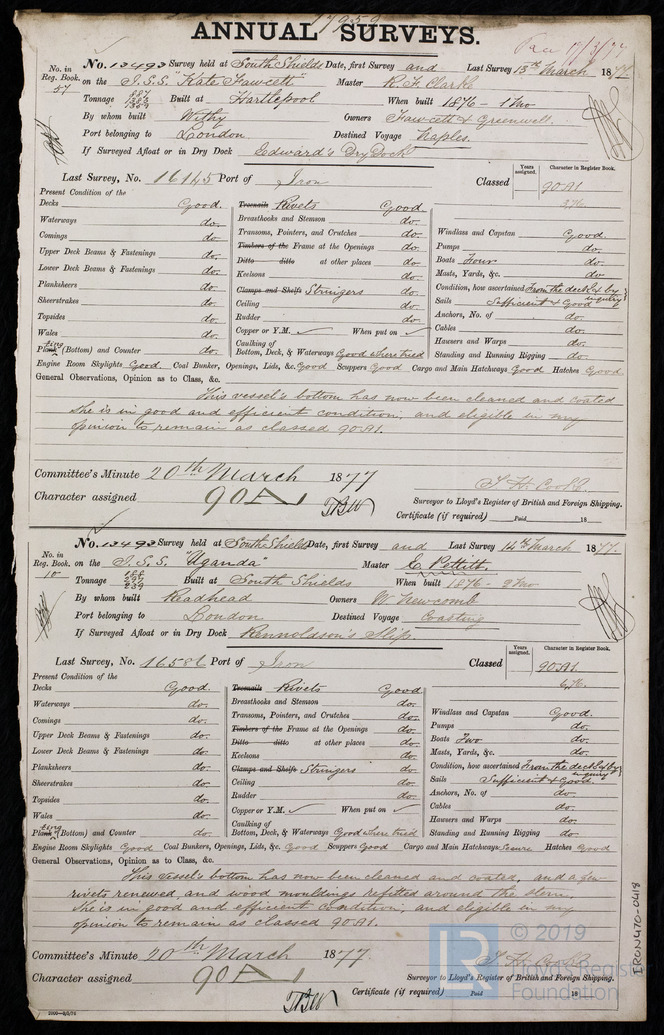 17959
ANNUAL SURVEYS.
Rec 17/3/77
No. in Reg. Book. 57
No. 13493 Survey held at South Shields Date, first Survey and Last Survey 13th March 1877.
on the I.S.S. "Kate Fawcett" Master R. F. Clarke
Tonnage Built at Hartlepool When built 1876 - 1 Mo
By whom built Withy Owners Fawcett & Greenwell.
Port belonging to London Destined Voyage Naples.
If Surveyed Afloat or in Dry Dock Edward's Dry Dock
Last Survey, No. 16145 Port of Iron Classed Years assigned. Character in Register Book. 90A1
3,76
Present Condition of the
Decks Good. Treenails Rivets Good
Waterways do. Breasthooks and Stemson do. Windlass and Capstan Good.
Comings do. Transoms, Pointers, and Crutches do. Pumps do.
Upper Deck Beams & Fastenings do. Timbers of the Frame at the Openings do. Boats Four do.
Lower Deck Beams & Fastenings do. Ditto ditto at other places do. Masts, Yards, &c. do
Planksheers do. Keelsons do. Condition, how ascertained From the deck & by inquiry
Sheerstrakes do. Clamps and Shelfs Stringers do. Sails Sufficient & Good
Topsides do. Ceiling do. Anchors, No. of do.
Wales do. Rudder do Cables do.
Plating (Bottom) and Counter do. Copper or Y.M. ✓ When put on ✓ Hawsers and Warps do.
Caulking of Bottom, Deck, & Waterways Good where tried Standing and Running Rigging do.
Engine Room Skylights Good. Coal Bunker, Openings, Lids, &c. Good Scuppers Good Cargo and Main Hatchways Good Hatches Good
General Observations, Opinion as to Class, &c.
This vessel's bottom has now been cleaned and coated
She is in good and efficient condition, and eligible in my
opinion to remain as classed 90A1.
Committee's Minute 20th March 1877
Character assigned 90A1
Surveyor to Lloyd's Register of British and Foreign Shipping.
Certificate (if required) Paid 18
No. in Reg. Book. 10
No. 13493 Survey held at South Shields Date, first Survey and Last Survey 14th March 1877.
on the I.S.S. "Uganda" Master C. Pettith
Tonnage Built at South Shields When built 1876 - 2 Mo
By whom built Readhead Owners W. Newcomb
Port belonging to London Destined Voyage Coasting
If Surveyed Afloat or in Dry Dock Rennoldson's Slip.
Last Survey, No. Port of Iron Classed Years assigned. Character in Register Book. 90A1
6,76.
Present Condition of the
Decks Good. Treenails Rivets Good
Waterways do. Breasthooks and Stemson do. Windlass and Capstan Good.
Comings do. Transoms, Pointers, and Crutches do. Pumps do.
Upper Deck Beams & Fastenings do. Timbers of the Frame at the Openings do. Boats Two do.
Lower Deck Beams & Fastenings do. Ditto ditto at other places do. Masts, Yards, &c. do.
Planksheers do. Keelsons do. Condition, how ascertained From the deck & by inquiry
Sheerstrakes do. Clamps and Shelfs Stringers do. Sails Sufficient & Good.
Topsides do. Ceiling do. Anchors, No. of do.
Wales do. Rudder do. Cables do.
Plating (Bottom) and Counter do. Copper or Y.M. ✓ When put on ✓ Hawsers and Warps do.
Caulking of Bottom, Deck, & Waterways Good where tried Standing and Running Rigging do.
Engine Room Skylights Good Coal Bunkers, Openings, Lids, &c. Good Scuppers Good Cargo and Main Hatchways Secure Hatches Good
General Observations, Opinion as to Class, &c.
This vessel's bottom has now been cleaned and coated, and a few
rivets renewed, and wood mouldings refitted around the stern.
She is in good and efficient condition, and eligible in my
opinion to remain as classed 90A1.
Committee's Minute 20th March 1877
Character assigned 90A1
Surveyor to Lloyd's Register of British and Foreign Shipping.
Certificate (if required) Paid 18
© 2019
Lloyd's Register
Foundation
IRON470-0418